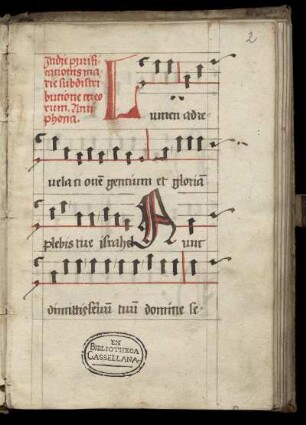 2
In die purifi
cationis ma
rie sub distri
butione cereo
rum. Anti
phona.
Lumen ad re
velati onē gentium et gloriā
plebis tue israhel Nunc
dimittis servū tuū domine se-
EX
BIBLIOTHECA
CASSELLANA